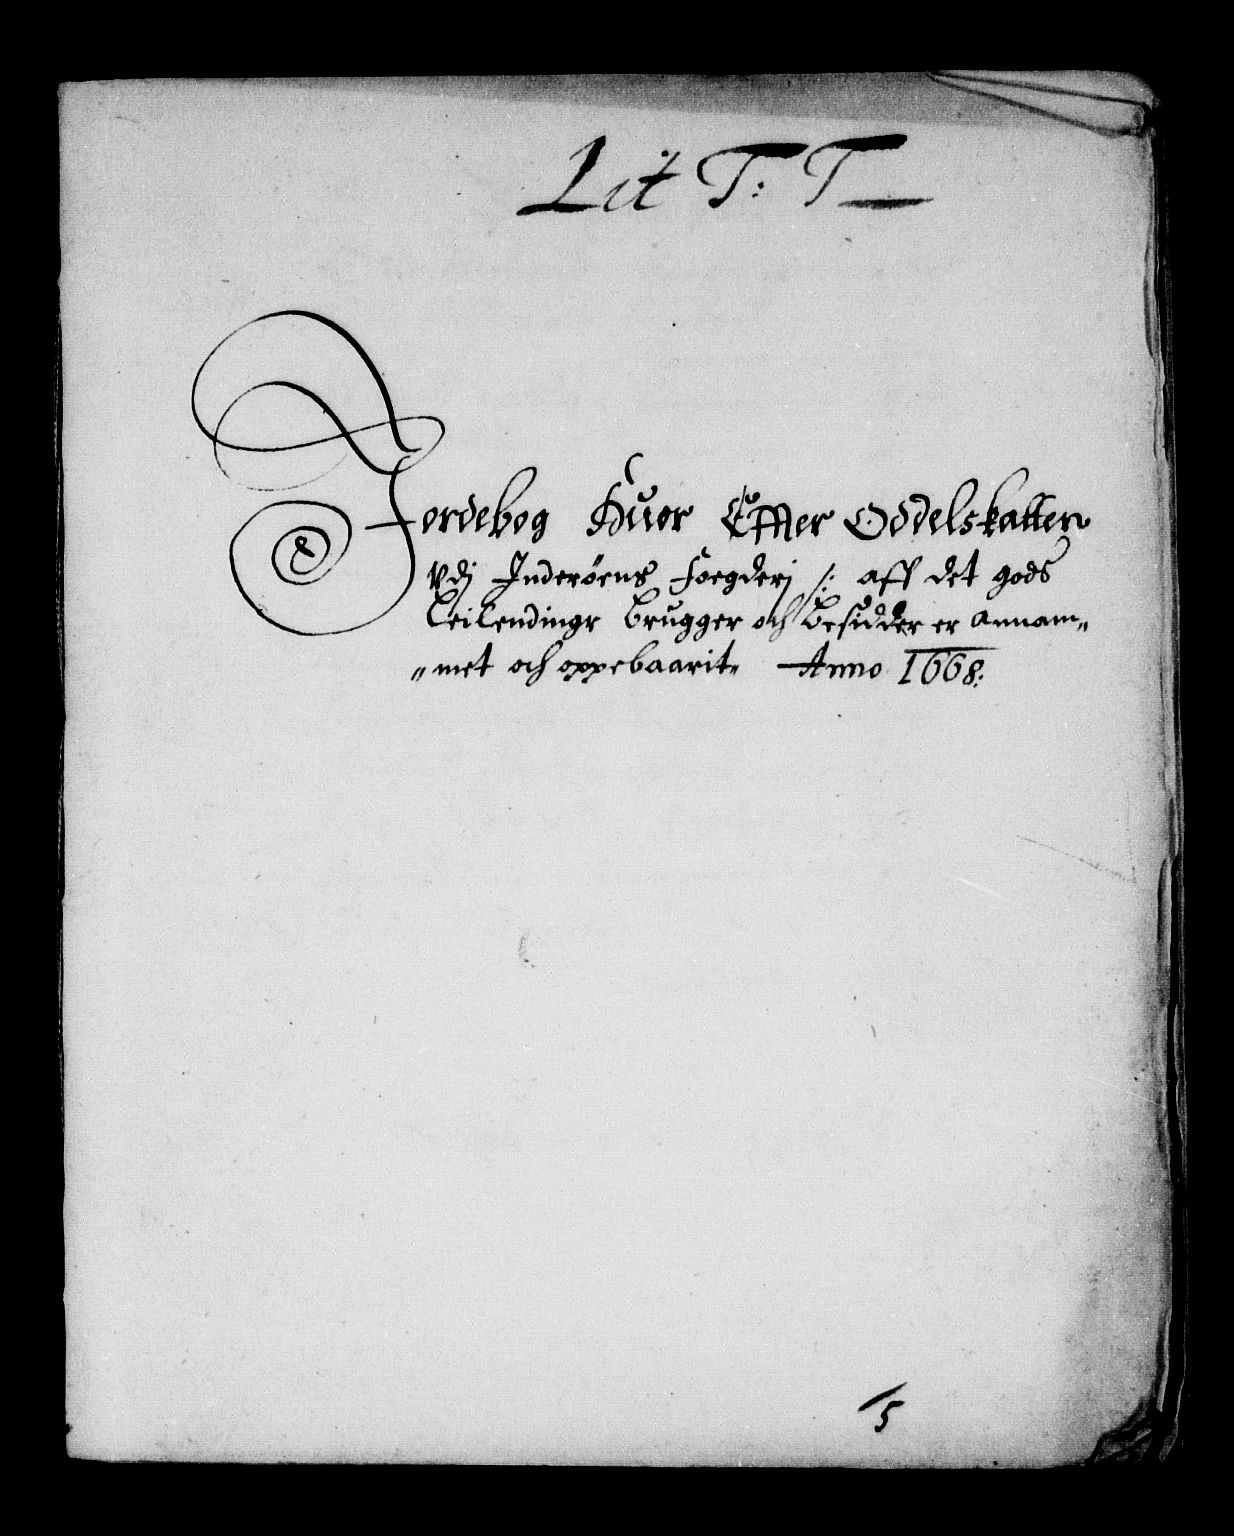 Lit T: T
Jordebog Huor Effter Oddelskatten
vdj Inderøens foegderj /: aff det gods
Leilendingr brugger och besidder er annam„
„met och oppebaarit„ Anno 1668:
5